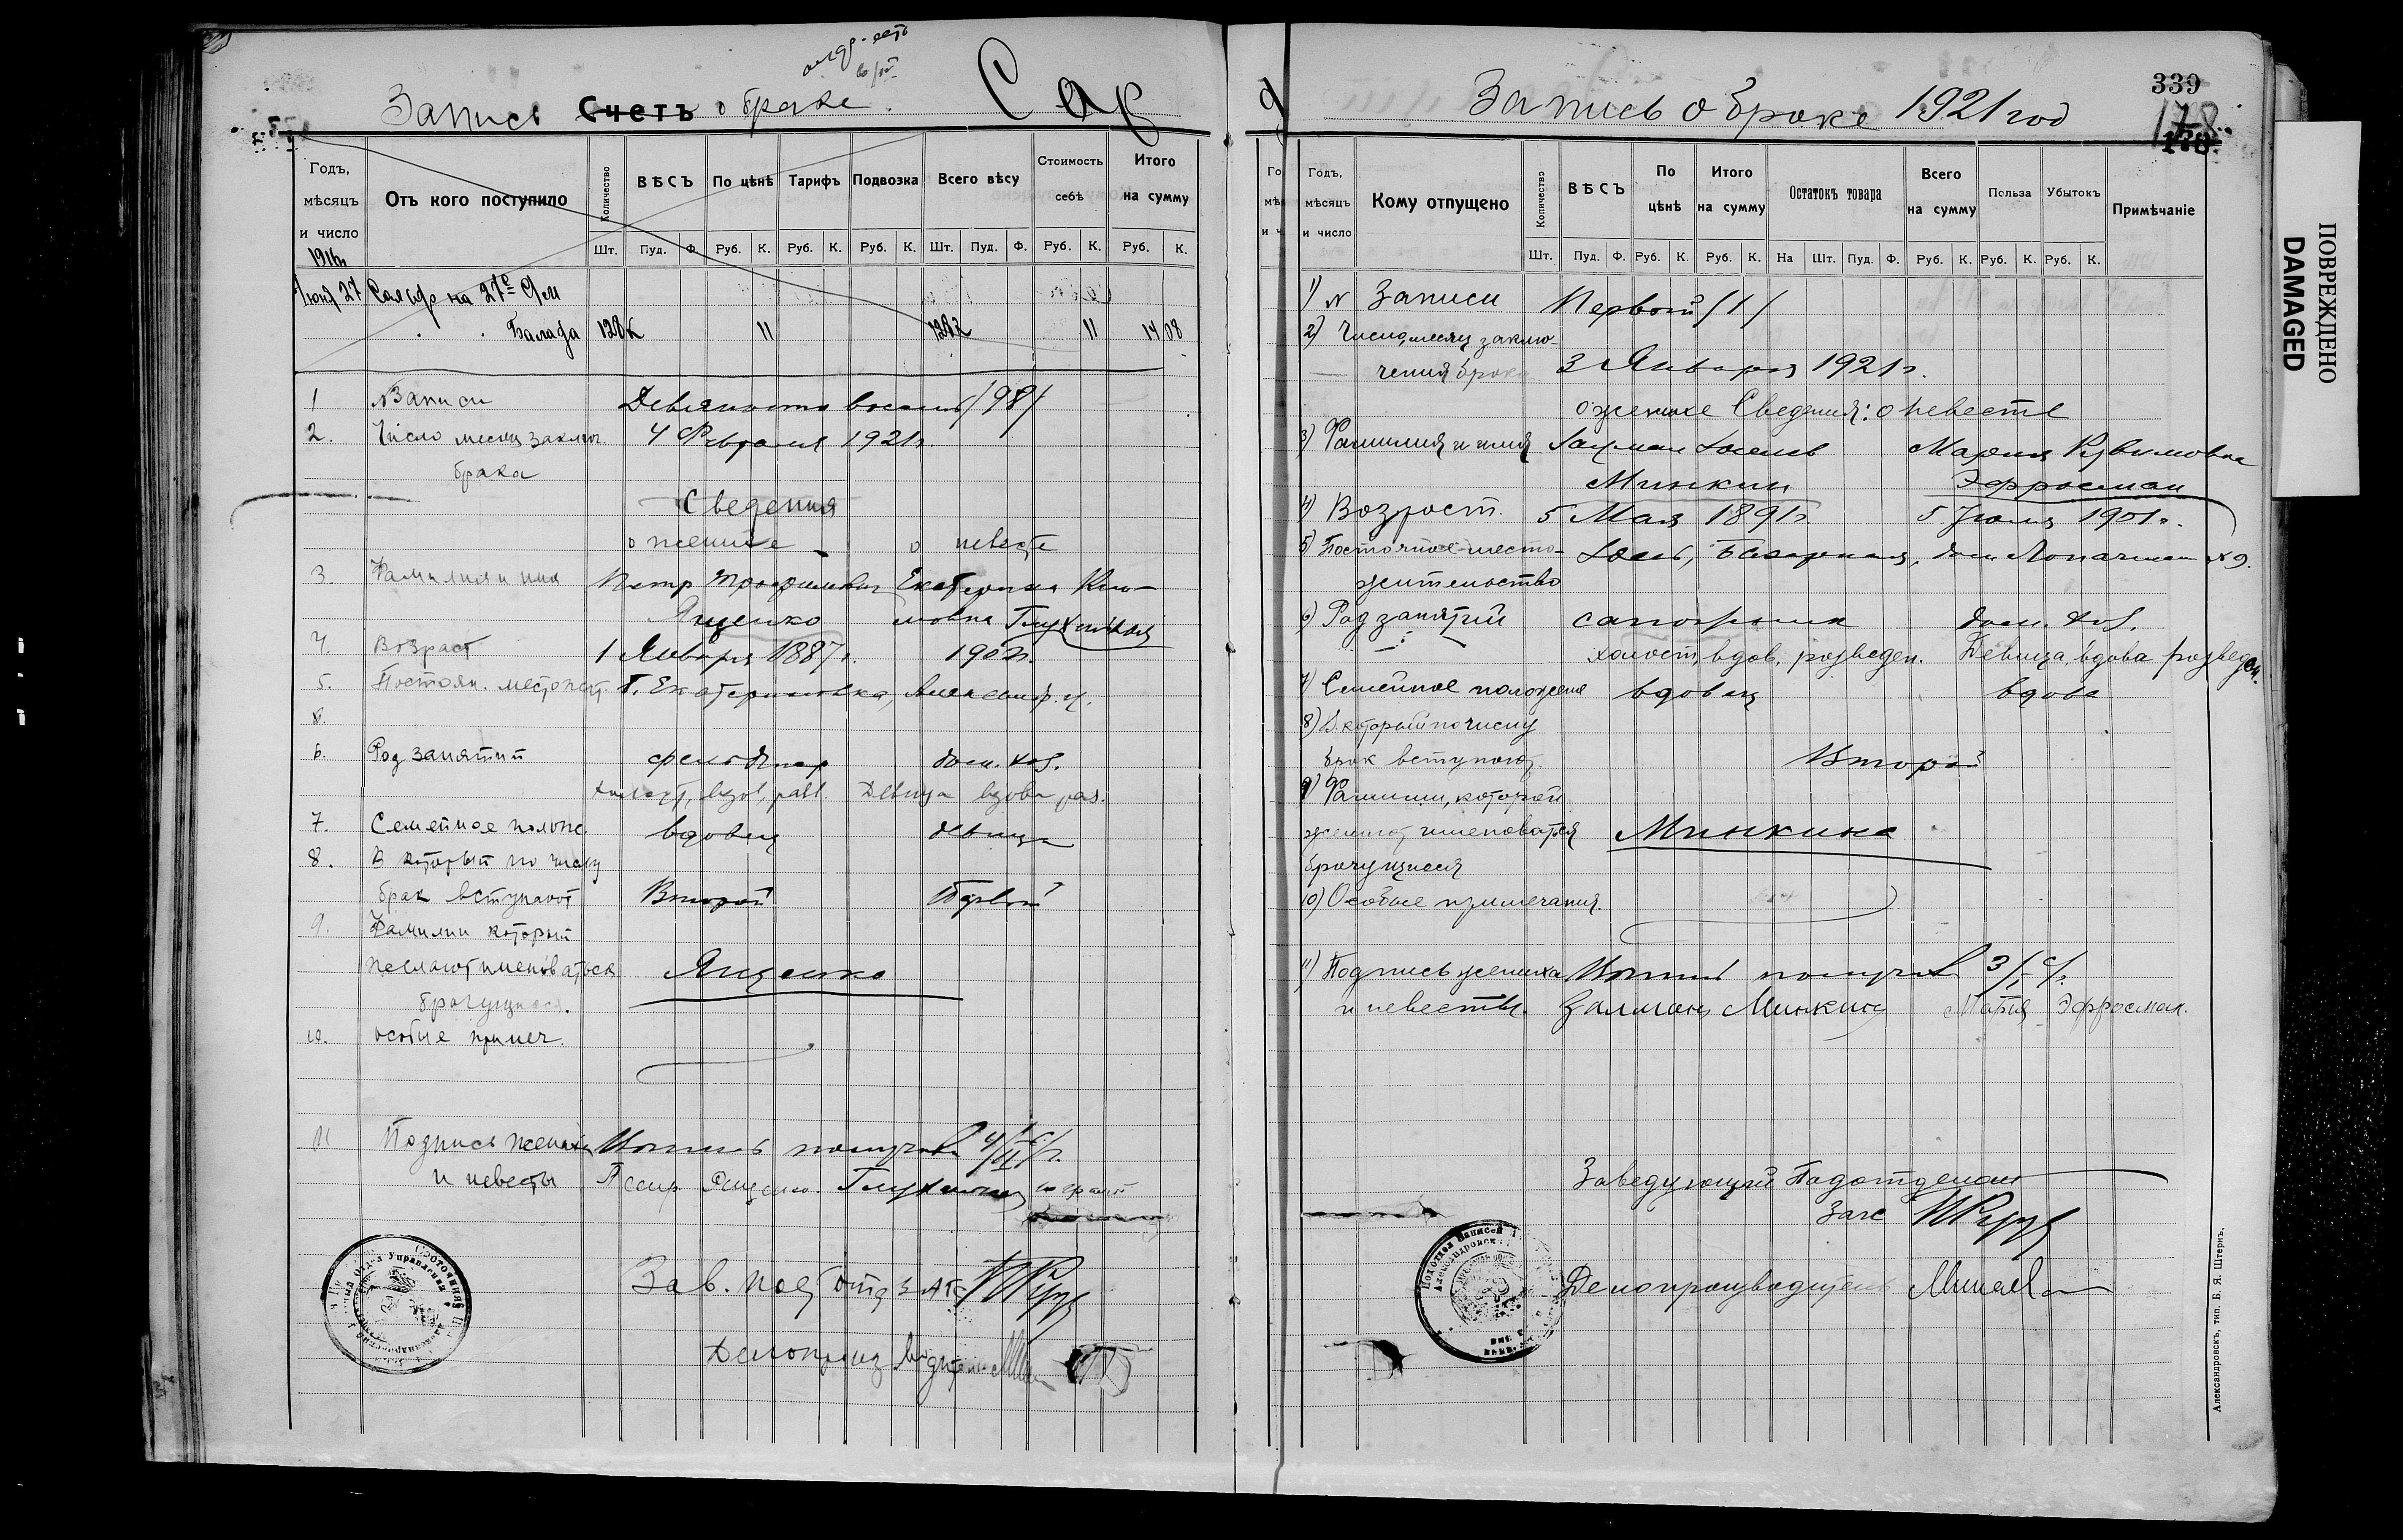 Запись Счетъ о браке.
Сах
Годъ, мѣсяцъ и число
Отъ кого поступило
Количество
ВѢСЪ
По цѣнѣ
Тарифъ
Подвозка
Всего вѣсу
Стоимость себѣ
Итого на сумму
Шт. Пуд. Ф. Руб. К. Руб. К. Руб. К. Шт. Пуд. Ф. Руб. К. Руб. К.
1916г
Июня 27 на 27е
128 11 11 14 08
1 N Записи Девяносто восемь /98/
2. Число месяц заключ. 4 Февраля 1921г.
брака
Сведения
о женихе о невесте
3. Фамилия и имя Петр Трофимович Екатерина Кли-
Яценко мовна
4. Возраст 1 Января 1887г. 1902г.
5. Постоян. местожит. Екатериновка, Александр. у.
6.
6. Род занятий фельдшер дом. хоз.
холост, вдов, разв. Девица вдова раз.
7. Семейное полож. вдовец девица
8. В который по числу
брак вступают Второй Первый
9. Фамилии которой
желают именоваться Яценко
брачущиеся.
10. особые примеч.
11 Подпись жениха Копию получил 4/II
и невесты
Зав. подотд ЗАГС
Делопроизводитель
Запись о браке 1921 год
339
178
Го мѣ и ч
Годъ, мѣсяцъ и число
Кому отпущено
Количество
ВѢСЪ
По цѣнѣ
Итого на сумму
Остатокъ товара
Всего на сумму
Польза
Убытокъ
Примѣчаніе
Шт. Пуд. Ф. Руб. К. Руб. К. На Шт. Пуд. Ф. Руб. К. Руб. К. Руб. К.
1) N Записи Первый /1/
2) Число, месяц заклю-
чения брака 3 Января 1921г.
о женихе Сведения: о невесте
3) Фамилия и имя Мария Рувимовна
Минкин Эфросман
4) Возраст. 5 Мая 1891г. 5 Июля 1901г.
5) Постоянное место- Базарная, дом N 9.
жительство
6) Род занятий сапожник дом. хоз.
холост, вдов, розведен. Девица, вдова розведен.
7) Семейное положение вдовец вдова
8) В который по числу
брак вступают Второй
9) Фамилии, которой
желают именоваться Минкина
брачущиеся
10) Особые примечания.
11) Подпись жениха Копию получил 3/I
и невесты. Залман Минкин Мария Эфросман.
Заведующий Подотделом
Загс
Делопроизводитель
Александровскъ, тип. Б. Я. Штернъ.
ПОВРЕЖДЕНО
DAMAGED